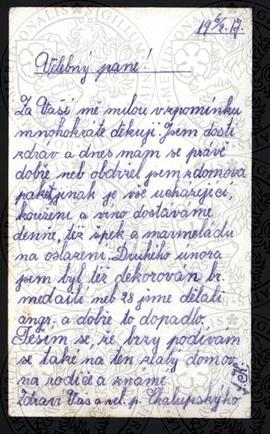 19 6/2. 17.
Velebný pane!
Za Vaší mě milou vzpomínku
mnohokráte děkuji. Jsem dosti
zdráv a dnes mám se právě
dobře neb obdržel jsem z domova
paket, jinak je vše ucházející,
kouření a víno dostáváme
denně, též špek a marmeladu
na oslazení. Druhého února
jsem byl též dekorován br.
medailí neb 28 jsme dělali
angr. a dobře to dopadlo.
Těším se, že brzy podívám
se také na ten zlatý domov
na rodiče a známé.
Zdraví Vás a vel. p. Chalupskýho